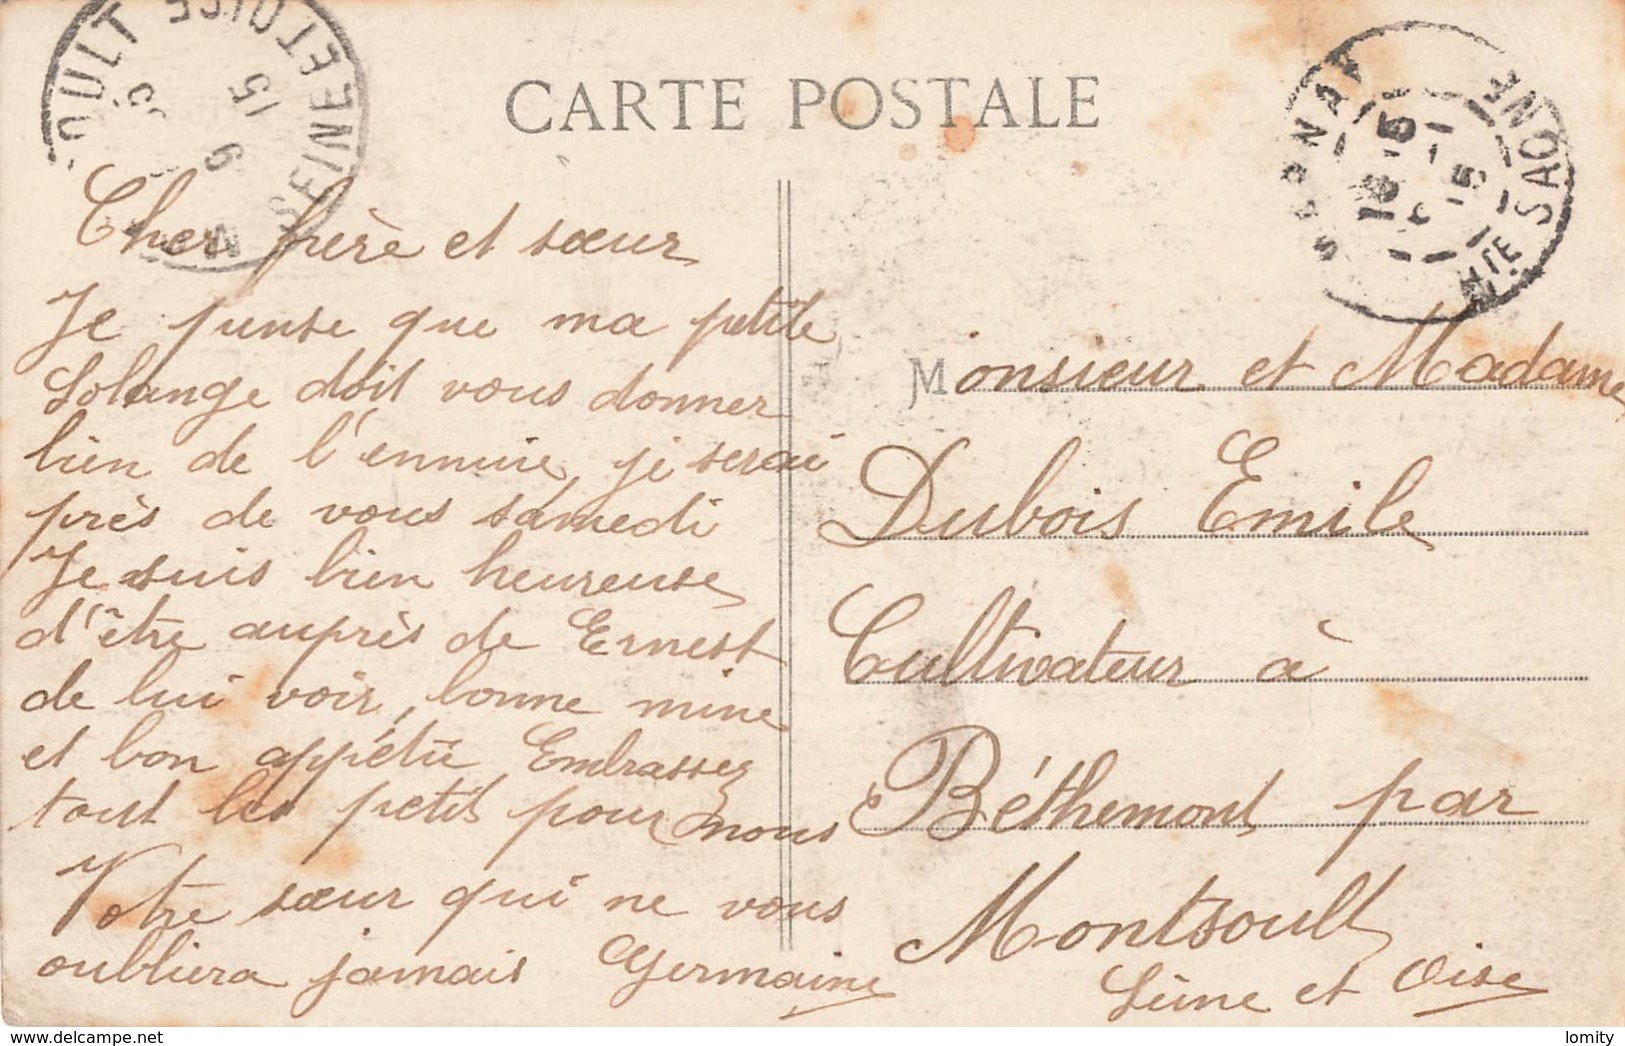 CARTE POSTALE
Cher frère et sœur
Je pense que ma petite
Solange doit vous donner
bien de l'ennuie, je serai
près de vous samedi
Je suis bien heureuse
d'être auprès de Ernest
de lui voir, bonne mine
et bon appétit Embrassez
tout les petit pour nous
Votre sœur qui ne vous
oubliera jamais Germaine
Monsieur et Madame
Dubois Emile
Cultivateur à
Béthemont par
Montsoult
Seine et Oise
OULT
SEINE ET OISE
15
9
Hte SAONE
15
lomity